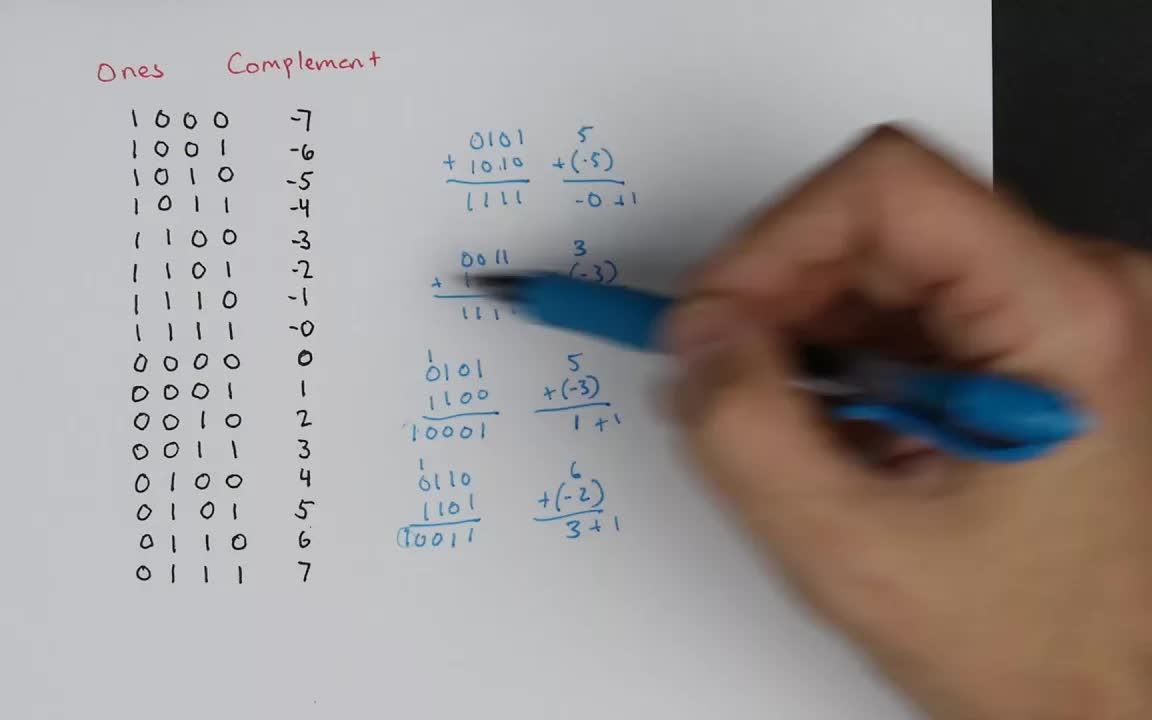 Ones Complement
1 0 0 0 -7
1 0 0 1 -6
1 0 1 0 -5
1 0 1 1 -4
1 1 0 0 -3
1 1 0 1 -2
1 1 1 0 -1
1 1 1 1 -0
0 0 0 0 0
0 0 0 1 1
0 0 1 0 2
0 0 1 1 3
0 1 0 0 4
0 1 0 1 5
0 1 1 0 6
0 1 1 1 7
0101 5
+ 1010 +(-5)
1111 -0 +1
0011 3
+ 1 (-3)
111
1
0101 5
1100 +(-3)
10001 1 +1
1
0110 6
1101 +(-2)
10011 3 + 1